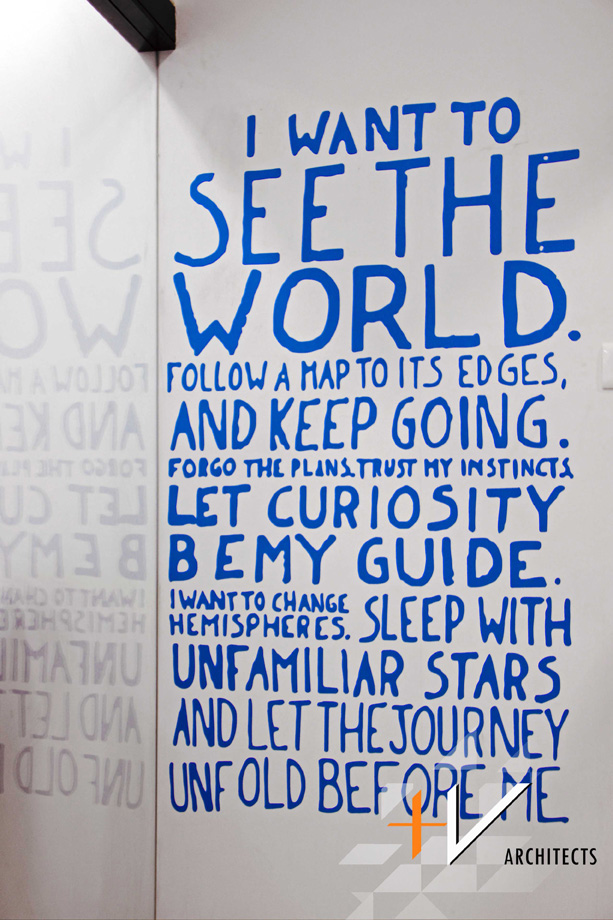 I WANT TO
SEE THE
WORLD.
FOLLOW A MAP TO ITS EDGES,
AND KEEP GOING.
FORGO THE PLANS.TRUST MY INSTINCTS.
LET CURIOSITY
BE MY GUIDE.
I WANT TO CHANGE
HEMISPHERES. SLEEP WITH
UNFAMILIAR STARS
AND LET THE JOURNEY
UNFOLD BEFORE ME
+V
ARCHITECTS